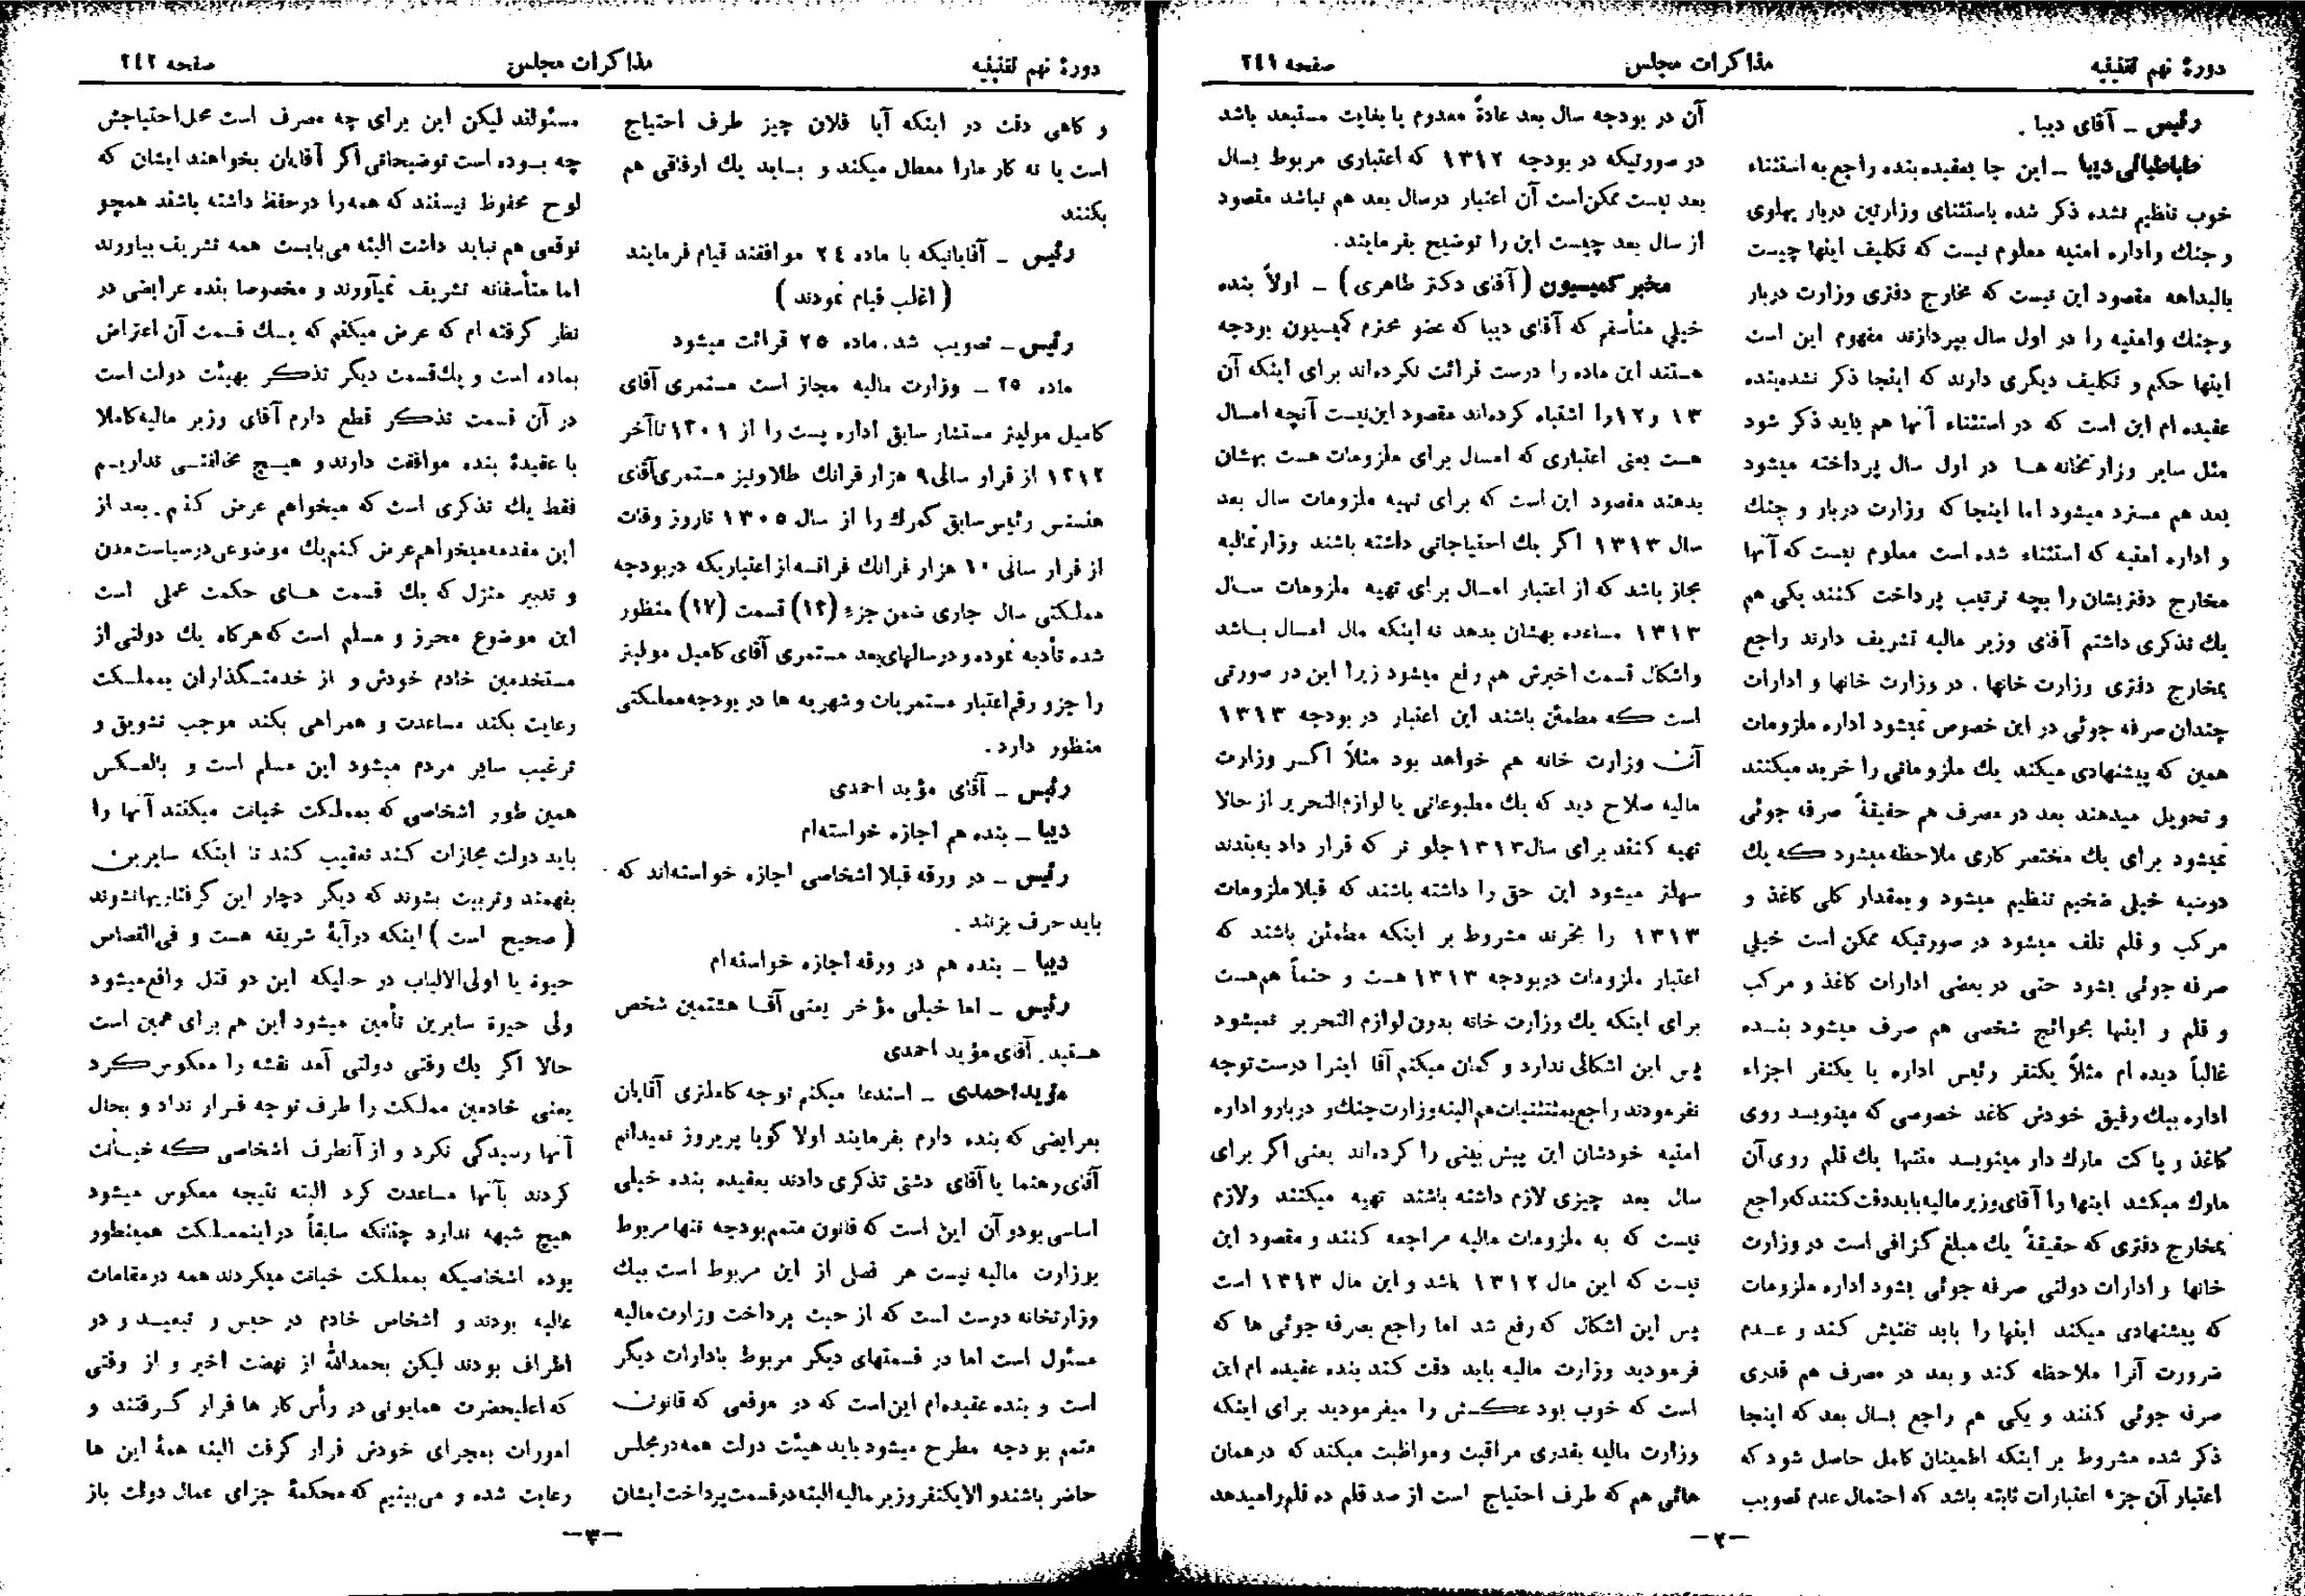 دورهٔ نهم تقنینیه
مذاکرات مجلس
صفحه ۲۴۱
رئیس ــ آقای دیبا .
طباطبائی دیبا ــ این جا بعقیده بنده راجع به استثناء
خوب تنظیم نشده ذکر شده باستثنای وزارتین دربار پهلوی
و جنك و اداره امنیه معلوم نیست که تکلیف اینها چیست
بالبداهه مقصود این نیست که مخارج دفتری وزارت دربار
وجنك وامنیه را در اول سال بپردازند مفهوم این است
اینها حکم و تکلیف دیگری دارند که اینجا ذکر نشده بنده
عقیده ام این است که در استثناء آنها هم باید ذکر شود
مثل سایر وزارتخانه هـا در اول سال پرداخته میشود
بعد هم مسترد میشود اما اینجا که وزارت دربار و جنك
و اداره امنیه که استثناء شده است معلوم نیست که آنها
مخارج دفتریشان را بچه ترتیب پرداخت کنند یکی هم
یك تذکری داشتم آقای وزیر مالیه تشریف دارند راجع
بمخارج دفتری وزارت خانها . در وزارت خانها و ادارات
چندان صرفه جوئی در این خصوص نمیشود اداره ملزومات
همین که پیشنهادی میکند یك ملزوماتی را خرید میکنند
و تحویل میدهند بعد در مصرف هم حقیقةً صرفه جوئی
نمیشود برای یك مختصر کاری ملاحظه میشود که یك
دوسیه خیلی ضخیم تنظیم میشود و بمقدار کلی کاغذ و
مرکب و قلم تلف میشود در صورتیکه ممکن است خیلی
صرفه جوئی بشود حتی در بعضی ادارات کاغذ و مرکب
و قلم و اینها بحوائج شخصی هم صرف میشود بنـده
غالباً دیده ام مثلاً یکنفر رئیس اداره یا یکنفر اجزاء
اداره بیك رفیق خودش کاغذ خصوصی که مینویسد روی
کاغذ و پاکت مارك دار مینویسد منتها یك قلم روی آن
مارك میکشد اینها را آقای وزیر مالیه باید دقت کنند که راجع
بمخارج دفتری که حقیقةً یك مبلغ گزافی است در وزارت
خانها و ادارات دولتی صرفه جوئی بشود اداره ملزومات
که پیشنهادی میکند اینها را باید تفتیش کند و عـدم
ضرورت آنرا ملاحظه کند و بعد در مصرف هم قدری
صرفه جوئی کنند و یکی هم راجع بسال بعد که اینجا
ذکر شده مشروط بر اینکه اطمینان کامل حاصل شود که
اعتبار آن جزء اعتبارات ثابته باشد که احتمال عدم تصویب
آن در بودجه سال بعد عادةً معدوم یا بغایت مستبعد باشد
در صورتیکه در بودجه ۱۳۱۲ که اعتباری مربوط بسال
بعد نیست ممکن است آن اعتبار درسال بعد هم نباشد مقصود
از سال بعد چیست این را توضیح بفرمایند.
مخبر کمیسیون (آقای دکتر طاهری) ــ اولاً بنده
خیلی متأسفم که آقای دیبا که عضو محترم کمیسیون بودجه
هستند این ماده را درست قرائت نکرده‌اند برای اینکه آن
۱۳ و ۱۲ را اشتباه کرده‌اند مقصود این نیست آنچه امسال
هست یعنی اعتباری که امسال برای ملزومات هست بهشان
بدهند مقصود این است که برای تهیه ملزومات سال بعد
سال ۱۳۱۳ اگر یك احتیاجاتی داشته باشند وزارتمالیه
مجاز باشد که از اعتبار امسال برای تهیه ملزومات سـال
۱۳۱۳ مساعده بهشان بدهد نه اینکه مال امسال بـاشد
واشکال قسمت اخیرش هم رفع میشود زیرا این در صورتی
است که مطمئن باشند این اعتبار در بودجه ۱۳۱۳
آن وزارت خانه هم خواهد بود مثلاً اگـر وزارت
مالیه صلاح دید که یك مطبوعاتی یا لوازم التحریر از حالا
تهیه کنند برای سال ۱۳۱۳ جلو تر که قرار داد به‌بندند
سهلتر میشود این حق را داشته باشند که قبلا ملزومات
۱۳۱۳ را بخرند مشروط بر اینکه مطمئن باشند که
اعتبار ملزومات دربودجه ۱۳۱۳ هست و حتماً هم هست
برای اینکه یك وزارت خانه بدون لوازم التحریر نمیشود
پس این اشکالی ندارد و گمان میکنم آقا اینرا درست توجه
نفرمودند راجع بمستثنیات هم البته وزارت جنك و دربار و اداره
امنیه خودشان این پیش بینی را کرده‌اند یعنی اگر برای
سال بعد چیزی لازم داشته باشند تهیه میکنند ولازم
نیست که به ملزومات مالیه مراجعه کنند و مقصود این
نیست که این مال ۱۳۱۲ باشد و این مال ۱۳۱۳ است
پس این اشکال که رفع شد اما راجع بصرفه جوئی ها که
فرمودید وزارت مالیه باید دقت کند بنده عقیده ام این
است که خوب بود عکسش را میفرمودید برای اینکه
وزارت مالیه بقدری مراقبت ومواظبت میکند که درهمان
هائی هم که طرف احتیاج است از صد قلم ده قلم را میدهد
ــ۲ــ
دورهٔ نهم تقنینیه
مذاکرات مجلس
صفحه ۲۴۲
و گاهی دقت در اینکه آیا فلان چیز طرف احتیاج
است یا نه کار مارا معطل میکند و بـاید یك ارفاقی هم
بکنند
رئیس ــ آقایانیکه با ماده ۲۴ موافقند قیام فرمایند
(اغلب قیام نمودند)
رئیس ــ تصویب شد. ماده ۲۵ قرائت میشود
ماده ۲۵ ــ وزارت مالیه مجاز است مستمری آقای
کامیل مولیتر مستشار سابق اداره پست را از ۱۳۰۱ تاآخر
۱۳۱۲ از قرار سالی ۹ هزار فرانك طلا ونیز مستمری آقای
هنسنس رئیس سابق گمرك را از سال ۱۳۰۵ تاروز وفات
از قرار سالی ۱۰ هزار فرانك فرانسه از اعتباریکه در بودجه
مملکتی سال جاری ضمن جزء (۱۲) قسمت (۱۷) منظور
شده تأدیه نموده و درسالهای بعد مستمری آقای کامیل مولیتر
را جزو رقم اعتبار مستمریات و شهریه ها در بودجه مملکتی
منظور دارد.
رئیس ــ آقای مؤید احمدی
دیبا ــ بنده هم اجازه خواسته‌ام
رئیس ــ در ورقه قبلا اشخاصی اجازه خواسته‌اند که
باید حرف بزنند .
دیبا ــ بنده هم در ورقه اجازه خواسته‌ام
رئیس ــ اما خیلی مؤخر یعنی آقـا هشتمین شخص
هستید. آقای مؤید احمدی
مؤید احمدی ــ استدعا میکنم توجه کاملتری آقایان
بعرایضی که بنده دارم بفرمایند اولا گویا پریروز نمیدانم
آقای رهنما یا آقای دشتی تذکری دادند بعقیده بنده خیلی
اساسی بود و آن این است که قانون متمم بودجه تنها مربوط
بوزارت مالیه نیست هر فصل از این مربوط است بیك
وزارتخانه درست است که از حیث پرداخت وزارت مالیه
مسئول است اما در قسمتهای دیگر مربوط بادارات دیگر
است و بنده عقیده‌ام این است که در موقعی که قانون
متمم بودجه مطرح میشود باید هیئت دولت همه در مجلس
حاضر باشند و الا یکنفر وزیر مالیه البته در قسمت پرداخت ایشان
مسئولند لیکن این برای چه مصرف است محل احتیاجش
چه بـوده است توضیحاتی اگر آقایان بخواهند ایشان که
لوح محفوظ نیستند که همه را در حفظ داشته باشند همچو
توقعی هم نباید داشت البته می‌بایست همه تشریف بیاورند
اما متأسفانه تشریف نمیآورند و مخصوصا بنده عرایضی در
نظر گرفته ام که عرض میکنم که یـك قسمت آن اعتراض
بماده است و یك قسمت دیگر تذکر بهیئت دولت است
در آن قسمت تذکر قطع دارم آقای وزیر مالیه کاملا
با عقیدهٔ بنده موافقت دارند و هیـچ مخالفتـی نداریـم
فقط یك تذکری است که میخواهم عرض کنم . بعد از
این مقدمه میخواهم عرض کنم یك موضوعی در سیاست مدن
و تدبیر منزل که یك قسمت هـای حکمت عملی است
این موضوع محرز و مسلم است که هرگاه یك دولتی از
مستخدمین خادم خودش و از خدمتـگذاران بمملـکت
رعایت بکند مساعدت و همراهی بکند موجب تشویق و
ترغیب سایر مردم میشود این مسلم است و بالعـکس
همین طور اشخاصی که بمملکت خیانت میکنند آنها را
باید دولت مجازات کند تعقیب کند تا اینکه سایرین
بفهمند وتربیت بشوند که دیگر دچار این گرفتاریها نشوند
(صحیح است) اینکه درآیهٔ شریفه هست و فی القصاص
حیوة یا اولی الالباب در حالیکه این دو قتل واقع میشود
ولی حیوة سایرین تأمین میشود این هم برای همین است
حالا اگر یك وقتی دولتی آمد نقشه را معکوس کرد
یعنی خادمین مملکت را طرف توجه قـرار نداد و بحال
آنها رسیدگی نکرد و از آنطرف اشخاصی که خیـانت
کردند بآنها مساعدت کرد البته نتیجه معکوس میشود
هیچ شبهه ندارد چنانکه سابقاً در این مملکت همینطور
بوده اشخاصیکه بمملکت خیانت میکردند همه در مقامات
عالیه بودند و اشخاص خادم در حبس و تبعیـد و در
اطراف بودند لیکن بحمدالله از نهضت اخیر و از وقتی
که اعلیحضرت همایونی در رأس کار ها قرار گـرفتند و
امورات بمجرای خودش قرار گرفت البته همهٔ این ها
رعایت شده و می‌بینیم که محکمهٔ جزای عمال دولت باز
ــ۳ــ